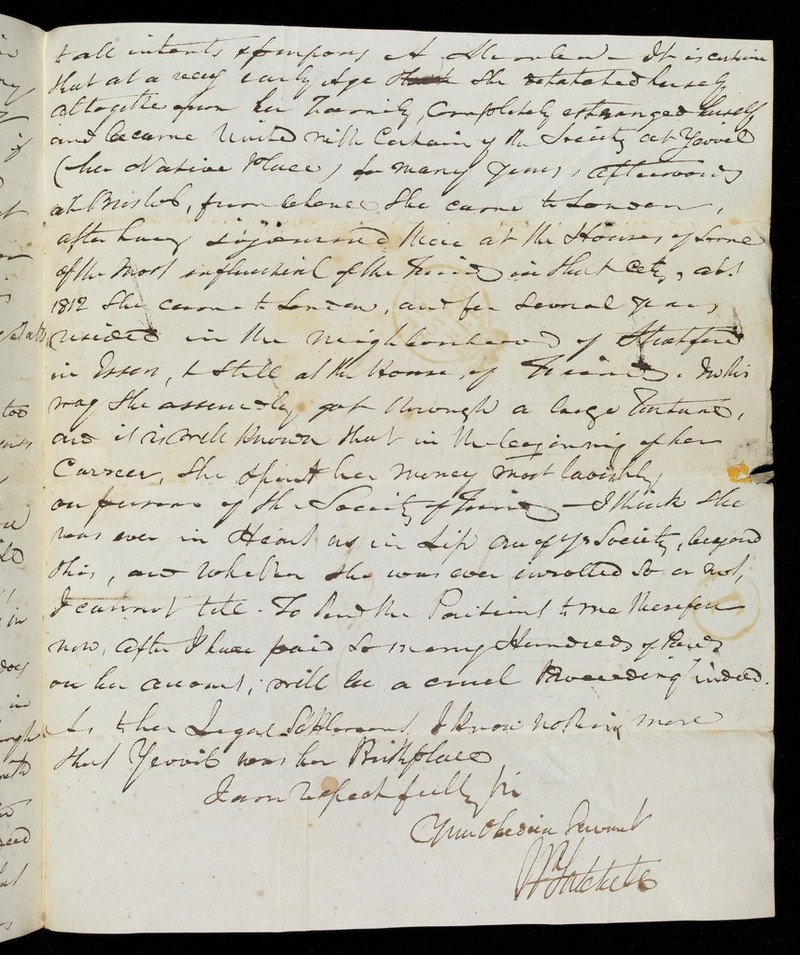 to all intents & purposes A Member - It is certain
that at a very early Age She detatched herself
altogether from her Family, Completely estranged herself
and became United with Certain of the Society at Yeovil
(her Native Place) for many years, afterwards
at Bristol, from whence She came to London,
after having sojourned there at the Houses of Some
of the Most influential of the Friends in that City, abt
1812 She came to London, and for Several years
resided in the Neighbourhood of Stratford
in Essex, & Still at the House of Friends. In this
way She assuredly got through a large Fortune,
and it is well known that in the beginning of her
Carreer, She Spent her money most lavishly
on persons of the Society of Friends - I think She
was ever in Heart as in Life One of ye Society, beyond
this, and whether She was ever inrolled So or not,
I cannot tell - To send the Patient to me therefore
now, after I have paid So many Hundreds of Pounds
on her account, will be a cruel Proceeding indeed.
As to her Legal Settlement, I know nothing more
that Yeovil was her Birthplace
I am respectfully Sir
Your Obedient Servant
Wm